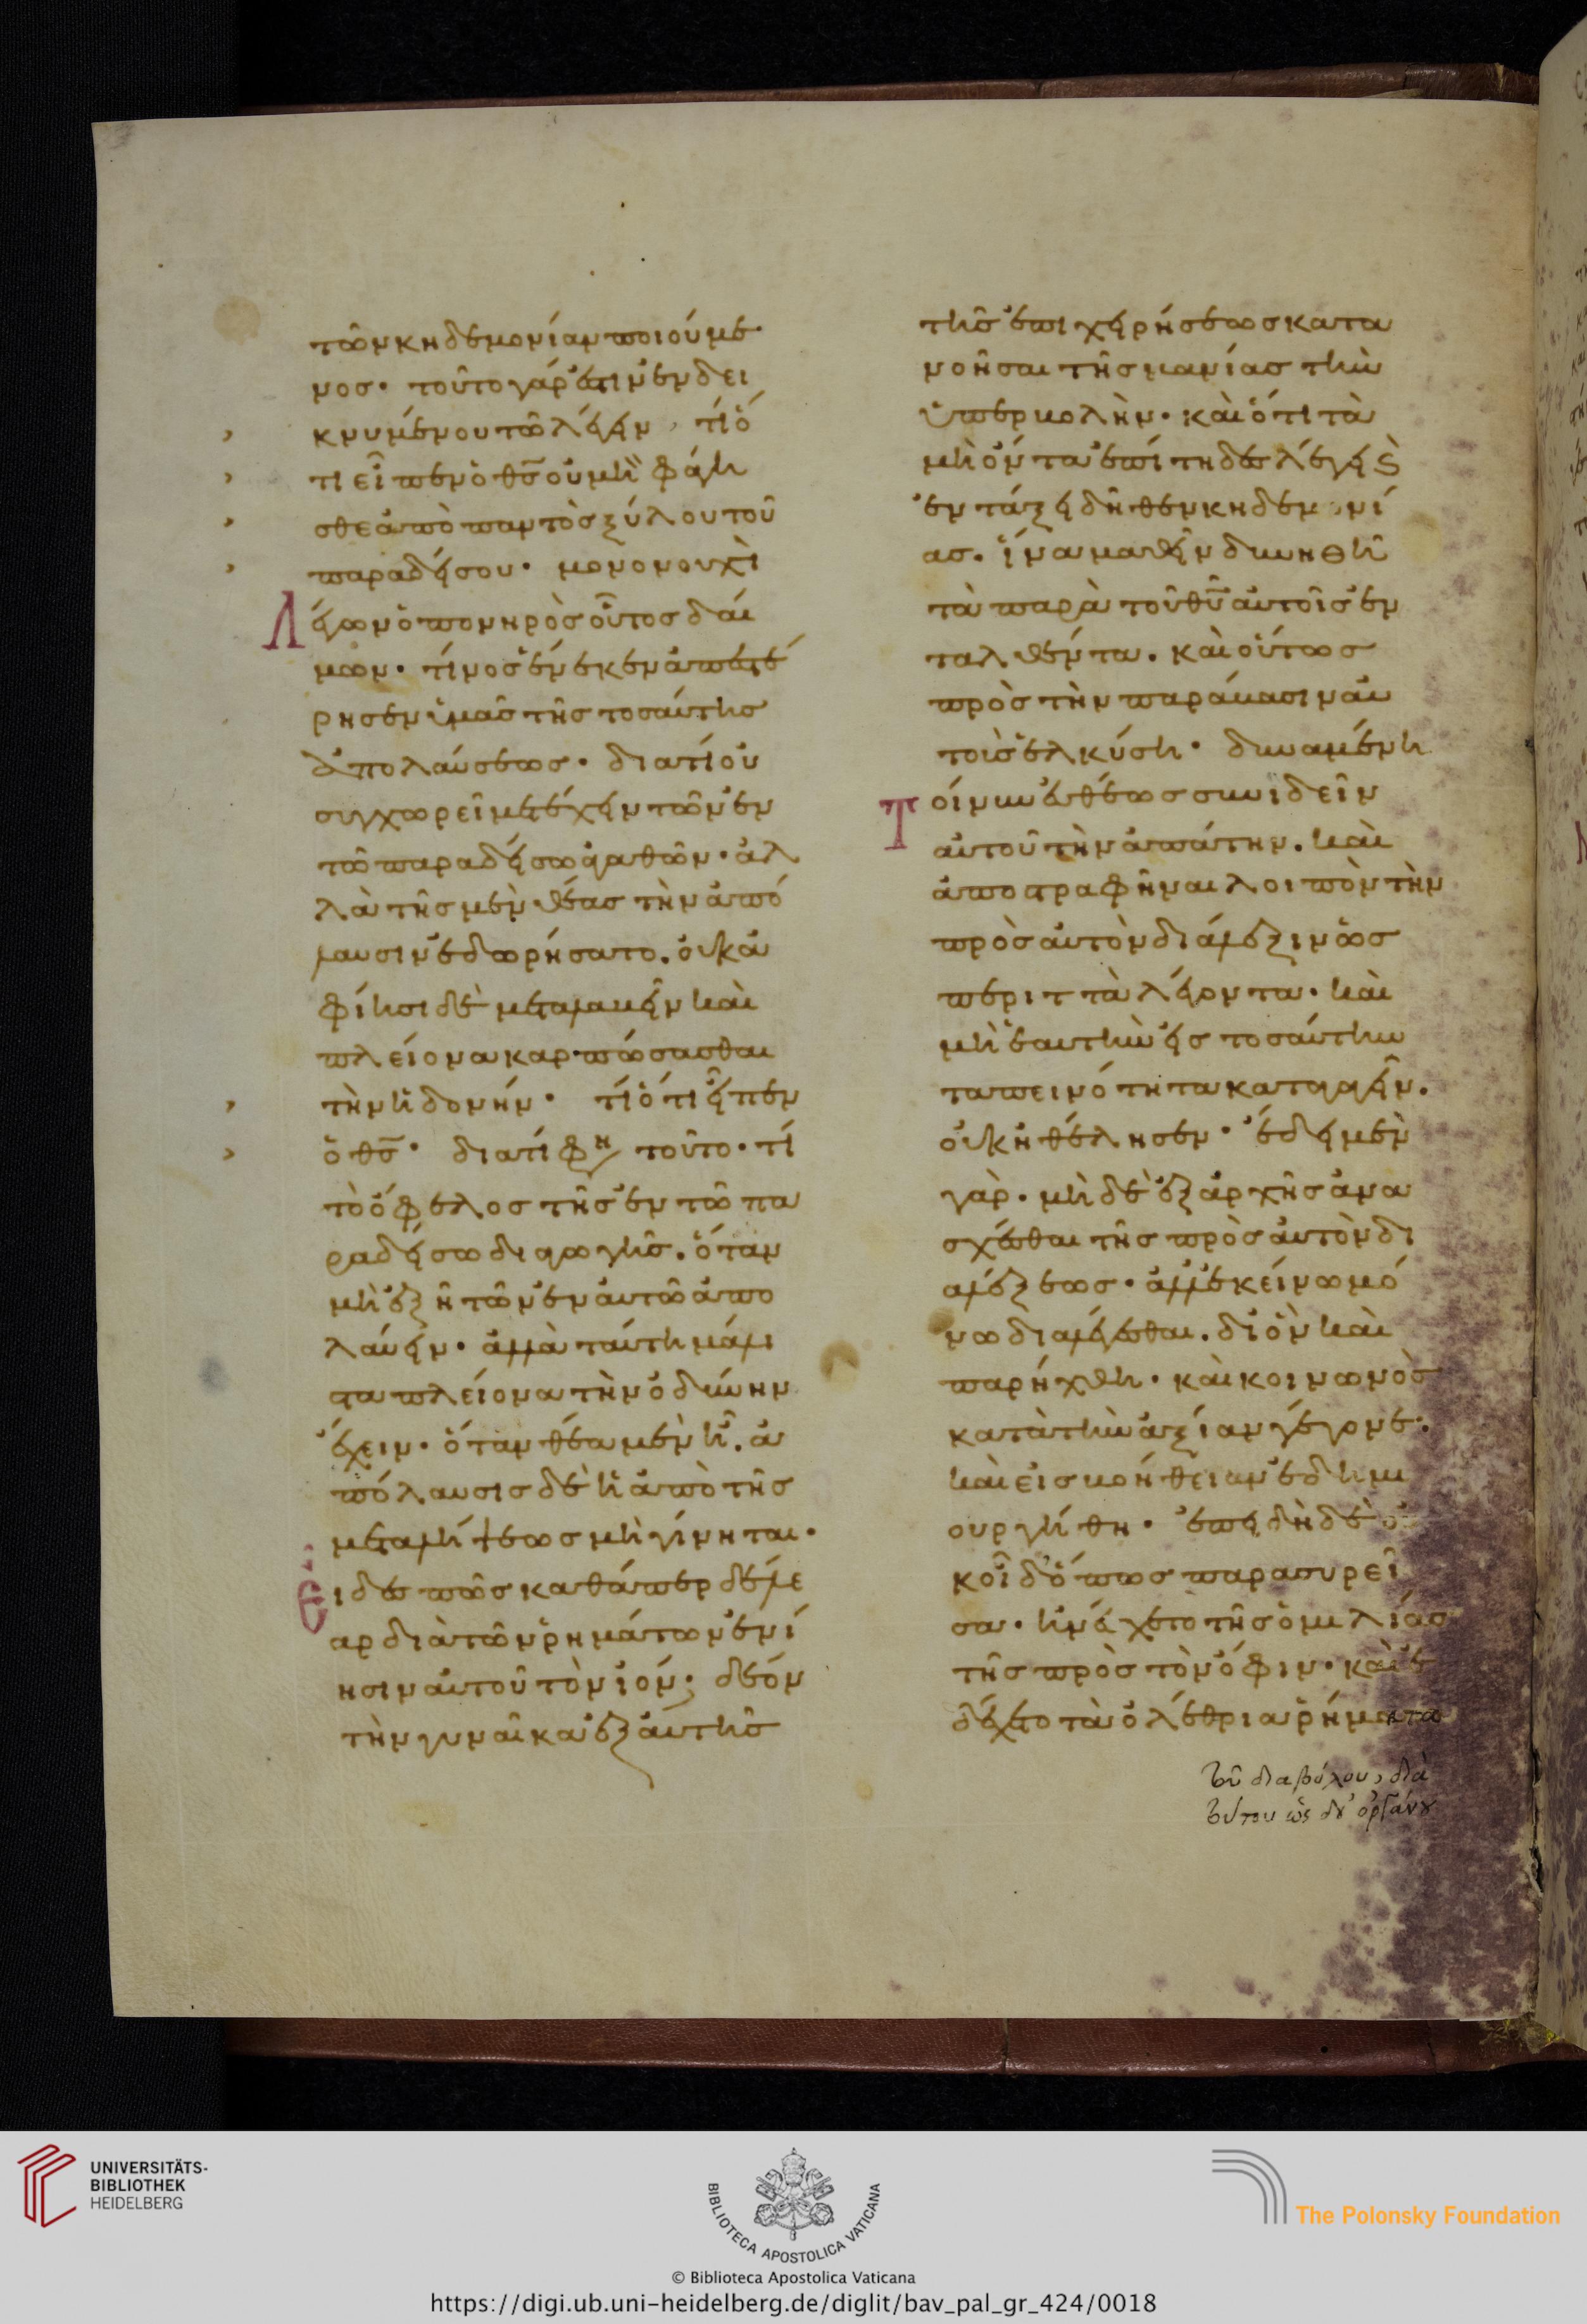 τῶν κηδεμονίαν ποιούμε
νος· τοῦτο γάρ ἐστιν ἐνδει
κνυμένου τῶ λέγειν, τί ὅ
τι εἶπεν ὁ θ̅ς̅ οὐ μὴ φάγη
σθε ἀπὸ παντὸς ξύλου τοῦ
παραδείσου· μονονουχὶ
λέγων ὁ πονηρὸς οὗτος δαί
μων· τίνος ἕνεκεν ἀπεστέ
ρησεν ὑμᾶς τῆς τοσαύτης
ἀπολαύσεως· διατί οὐ
συγχωρεῖ μετέχειν τῶν ἐν
τῶ παραδείσω ἀγαθῶν· ἀλ
λὰ τῆς μὲν θέας τὴν ἀπό
λαυσιν ἐδωρήσατο. οὐκ ἀ
φίησι δὲ μεταλαβεῖν καὶ
πλείονα καρπώσασθαι
τὴν ἡδονήν· τί ὅτι εἶπεν
ὁ θ̅ς̅· διατί φη τοῦτο· τί
τὸ ὄφελος τῆς ἐν τῶ πα
ραδείσω διαγωγῆς. ὅταν
μὴ ἐξῆ τῶν ἐν αὐτῶ ἀπο
λαύειν· ἀλλὰ ταύτη μάλι
στα πλείονα τὴν ὀδύνην
ἔχειν· ὅταν θέα μὲν ἦ. ἀ
πόλαυσις δὲ ἡ ἀπὸ τῆς
μεταλήψεως μὴ γίνηται·
εἶδες πῶς καθάπερ δέλε
αρ διὰ τῶν ῥημάτων ἐνί
ησιν αὐτοῦ τὸν ἰόν· δέον
τὴν γυναῖκα ἐξ αὐτῆς
τῆς ἐπιχειρήσεως κατα
νοῆσαι τῆς μανίας τὴν
ὑπερβολὴν· καὶ ὅτι τὰ
μὴ ὄντα ἐπίτηδες λέγει ϛ̀
ἐν τάξει δῆθεν κηδεμονί
ας. ἵνα μαθεῖν δυνηθῆ
τὰ παρὰ τοῦ θ̅υ̅ αὐτοῖς ἐν
ταλθέντα. καὶ οὕτως
πρὸς τὴν παράβασιν αὐ
τοὺς ἑλκύση· δυναμένη
τοίνυν εὐθέως συνιδεῖν
αὐτοῦ τὴν ἀπάτην. καὶ
ἀποστραφῆναι λοιπὸν τὴν
πρὸς αὐτὸν διάλεξιν ὡς
περιττὰ λέγοντα· καὶ
μὴ ἑαυτὴν εἰς τοσαύτην
ταπεινότητα καταγαγεῖν.
οὐκ ἠθέλησεν· ἔδει μὲν
γὰρ. μὴ δὲ ἐξ ἀρχῆς ἀνα
σχέσθαι τῆς πρὸς αὐτὸν δι
αλέξεως· ἀλλ' ἐκείνω μό
νω διαλέγεσθαι. δι' ὃν καὶ
παρήχθη· καὶ κοινωνὸς
κατὰ τὴν ἀξίαν γέγονε·
καὶ εἰς βοήθειαν ἐδημι
ουργήθη· ἐπειδὴ δὲ
κ οἶδ' ὅπως παρασυρεῖ
σα· ἠνέσχετο τῆς ὁμιλίας
τῆς πρὸς τὸν ὄφιν· καὶ ἐ
δέχετο τὰ ὀλέθρια ῥήματα
τοῦ διαβόλου, διὰ
τούτου ὡς δι' ὀργάνου
UNIVERSITÄTS-
BIBLIOTHEK
HEIDELBERG
BIBLIOTECA APOSTOLICA VATICANA
The Polonsky Foundation
© Biblioteca Apostolica Vaticana
https://digi.ub.uni-heidelberg.de/diglit/bav_pal_gr_424/0018